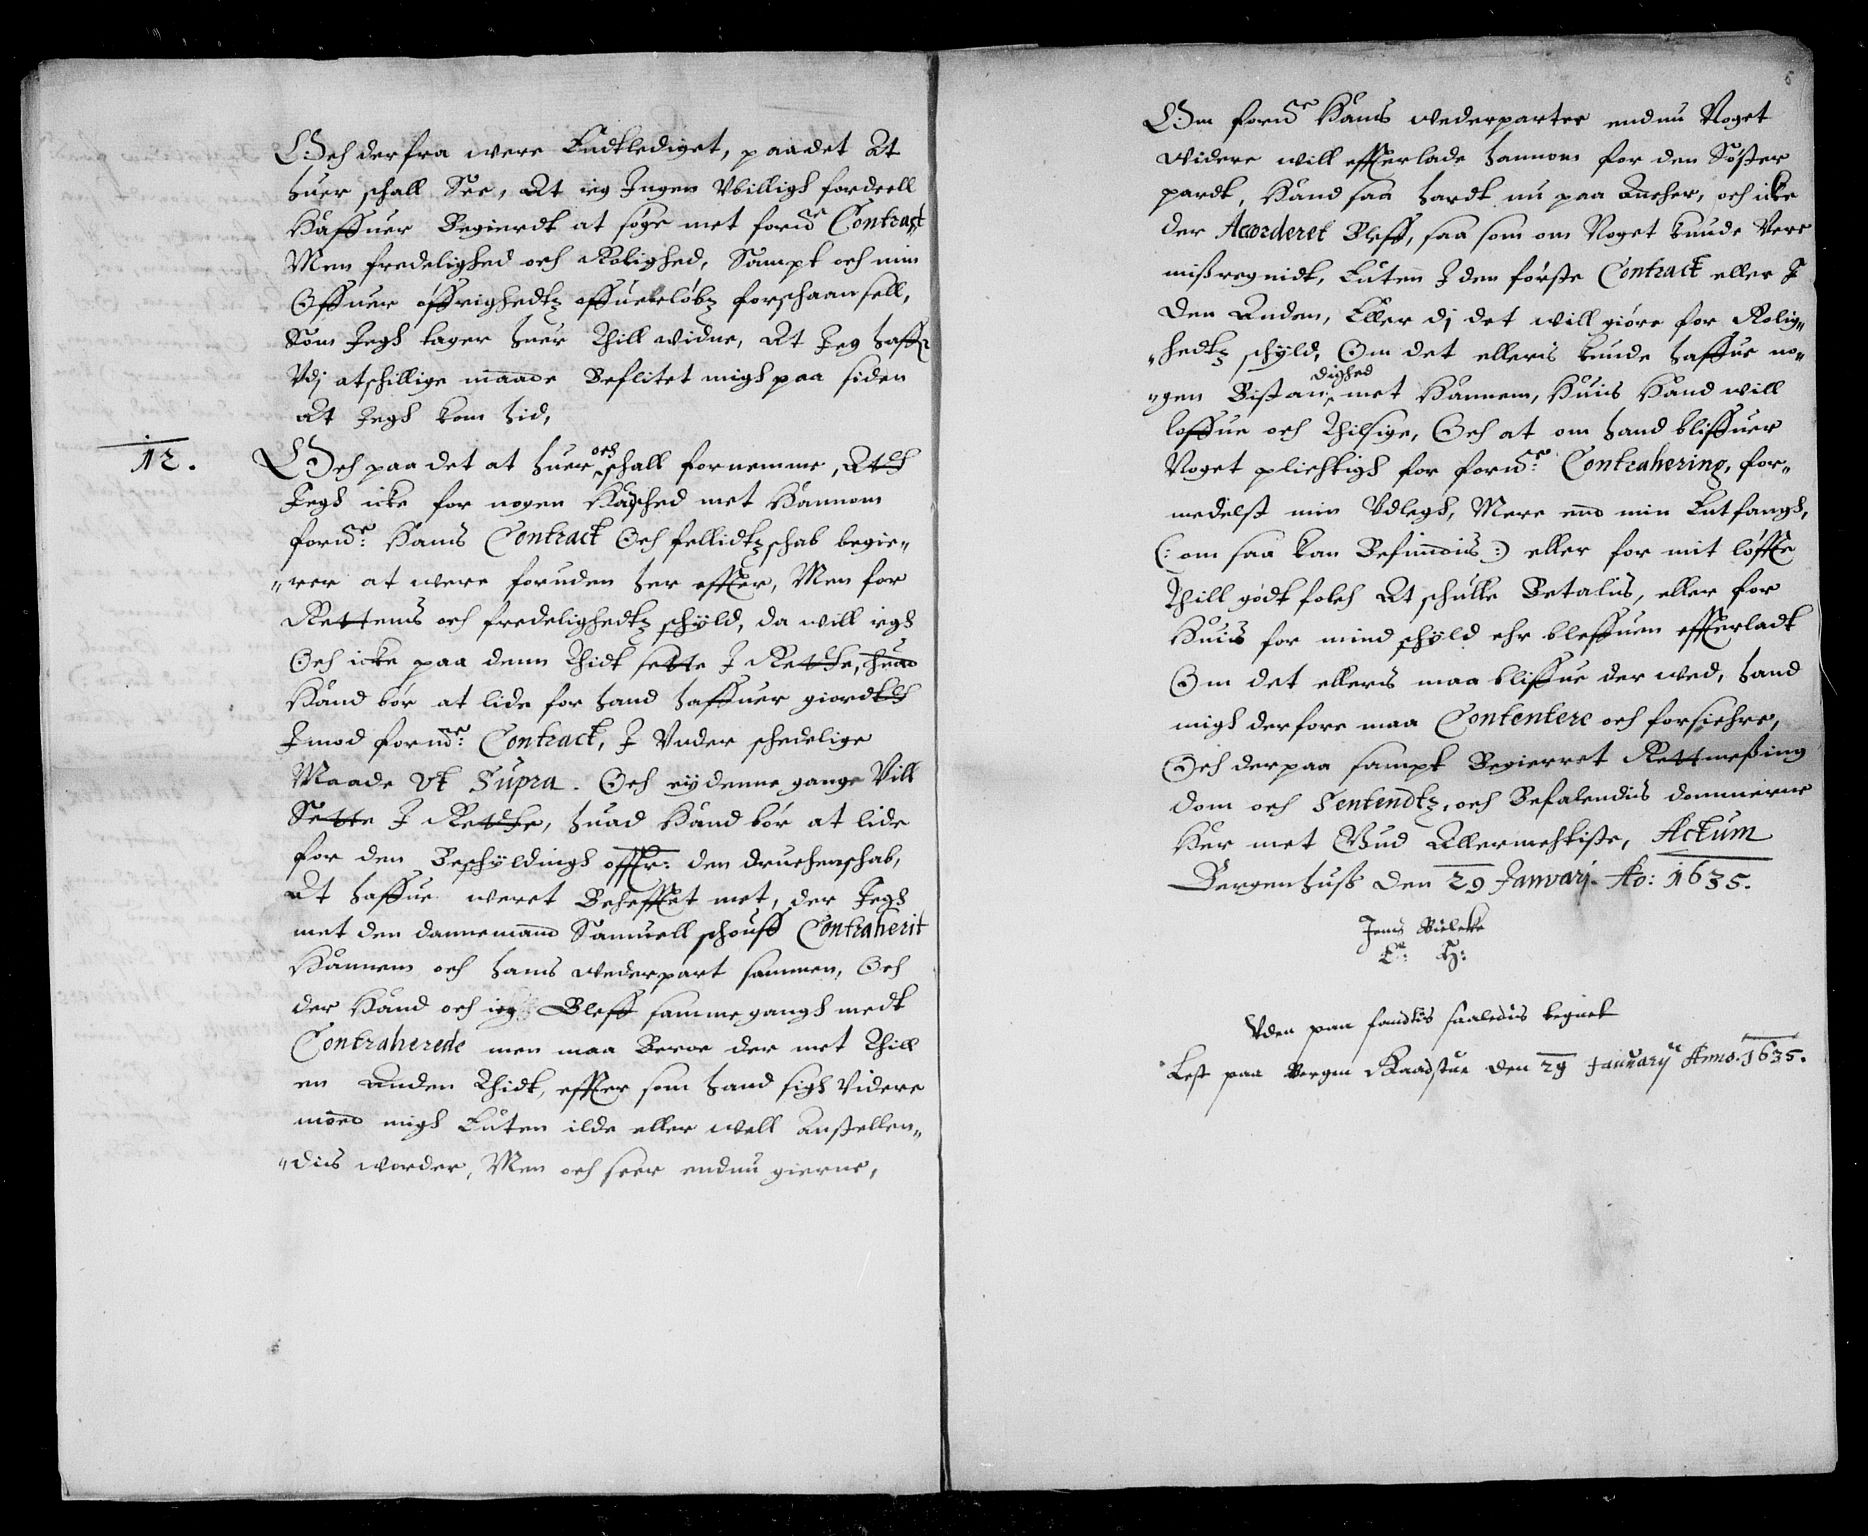 Och derfra were Endtlediget, paa det At
huer schall See, At ieg Ingen Vbilligh fordeell
Haffuer Begierdt at søge met fornde Contract
Men fredelighed och Rolighed, Sampt och min
Offuer øffrighedtz offuerløbz forschaansell,
Som Jegh tager huer Thill widne, At Jeg haffr
Vdj atschillige maade Beflitet migh paa siden
At Jegh kom hid,
12.
Och paa det at huer och schall fornemme, At
Jegh icke for nogen Hadsched met Hannom
fornde: Hans Contract Och fellidtzschab begie„
„rer at were foruden her effter, Men for
Rettens och fredelighedtz schyld, da will iegh
Och icke paa denn Thidt sette J Rette, huad
Hand bør at lide for hand haffuer giordt
Jmod fornde: Contract, J Vnder schedelige
Maade Vt Supra. Och ey denne gange Vill
Sette J Rette, huad Hand bør at lide
for den Beschyldingh offr: den druchenschab,
At haffue weret Behefftet met, der Jegh
met den dannemand Samuell schouff Contraherit
Hannem och hans wederpart sammen, Och
der Hand och ieg Bleff sammegangh medt
Contraherede men maa Beroe der met Thill
en Anden Thidt, effter som hand sigh Videre
moed migh Enten ilde eller well Anstellen„
„dis worder, Men och seer endnu gierne,
6
Om fornde Hans wederparter endnu Noget
Widere will effterlade hannom for den Søster
pardt, Hand saa hardt nu paa Ancher, och icke
der Accorderet Bleff, saa som om Noget kunde Vere
misregnidt, Enten J den første Contract eller J
Den Anden, Eller dj det will giøre for Rolig„
„hedtz schyld, Om det ellers kunde haffue no„
„gen Bistandighed met Hannem, Huis Hand will
loffue och Thilsige, Och at om hand bliffuer
Noget plichtigh for fornde: Contrahering, for„
medelst min Vdlegh, Mere end min Entfangh,
(: om saa kan Befindis :) eller for mit løffte
Thill godt folch At schulle Betalis, eller for
Huis for mind schyld ehr bleffuen effterladt
Om det ellers maa bliffue der wed, hand
migh derfore maa Contentere och forsichre,
Och derpaa sampt Begierret Rettmesßing
dom och Sententz, och Befalendis dommerne
Her met Gud Allermechtiste, Actum
Bergenhuss den 29 Januarj Ao: 1635.
Jens Bielcke
E: H:
Vden paa fandtis saaledis tegnet
Lest paa Bergen Raadstue den 29 January Anno. 1635.